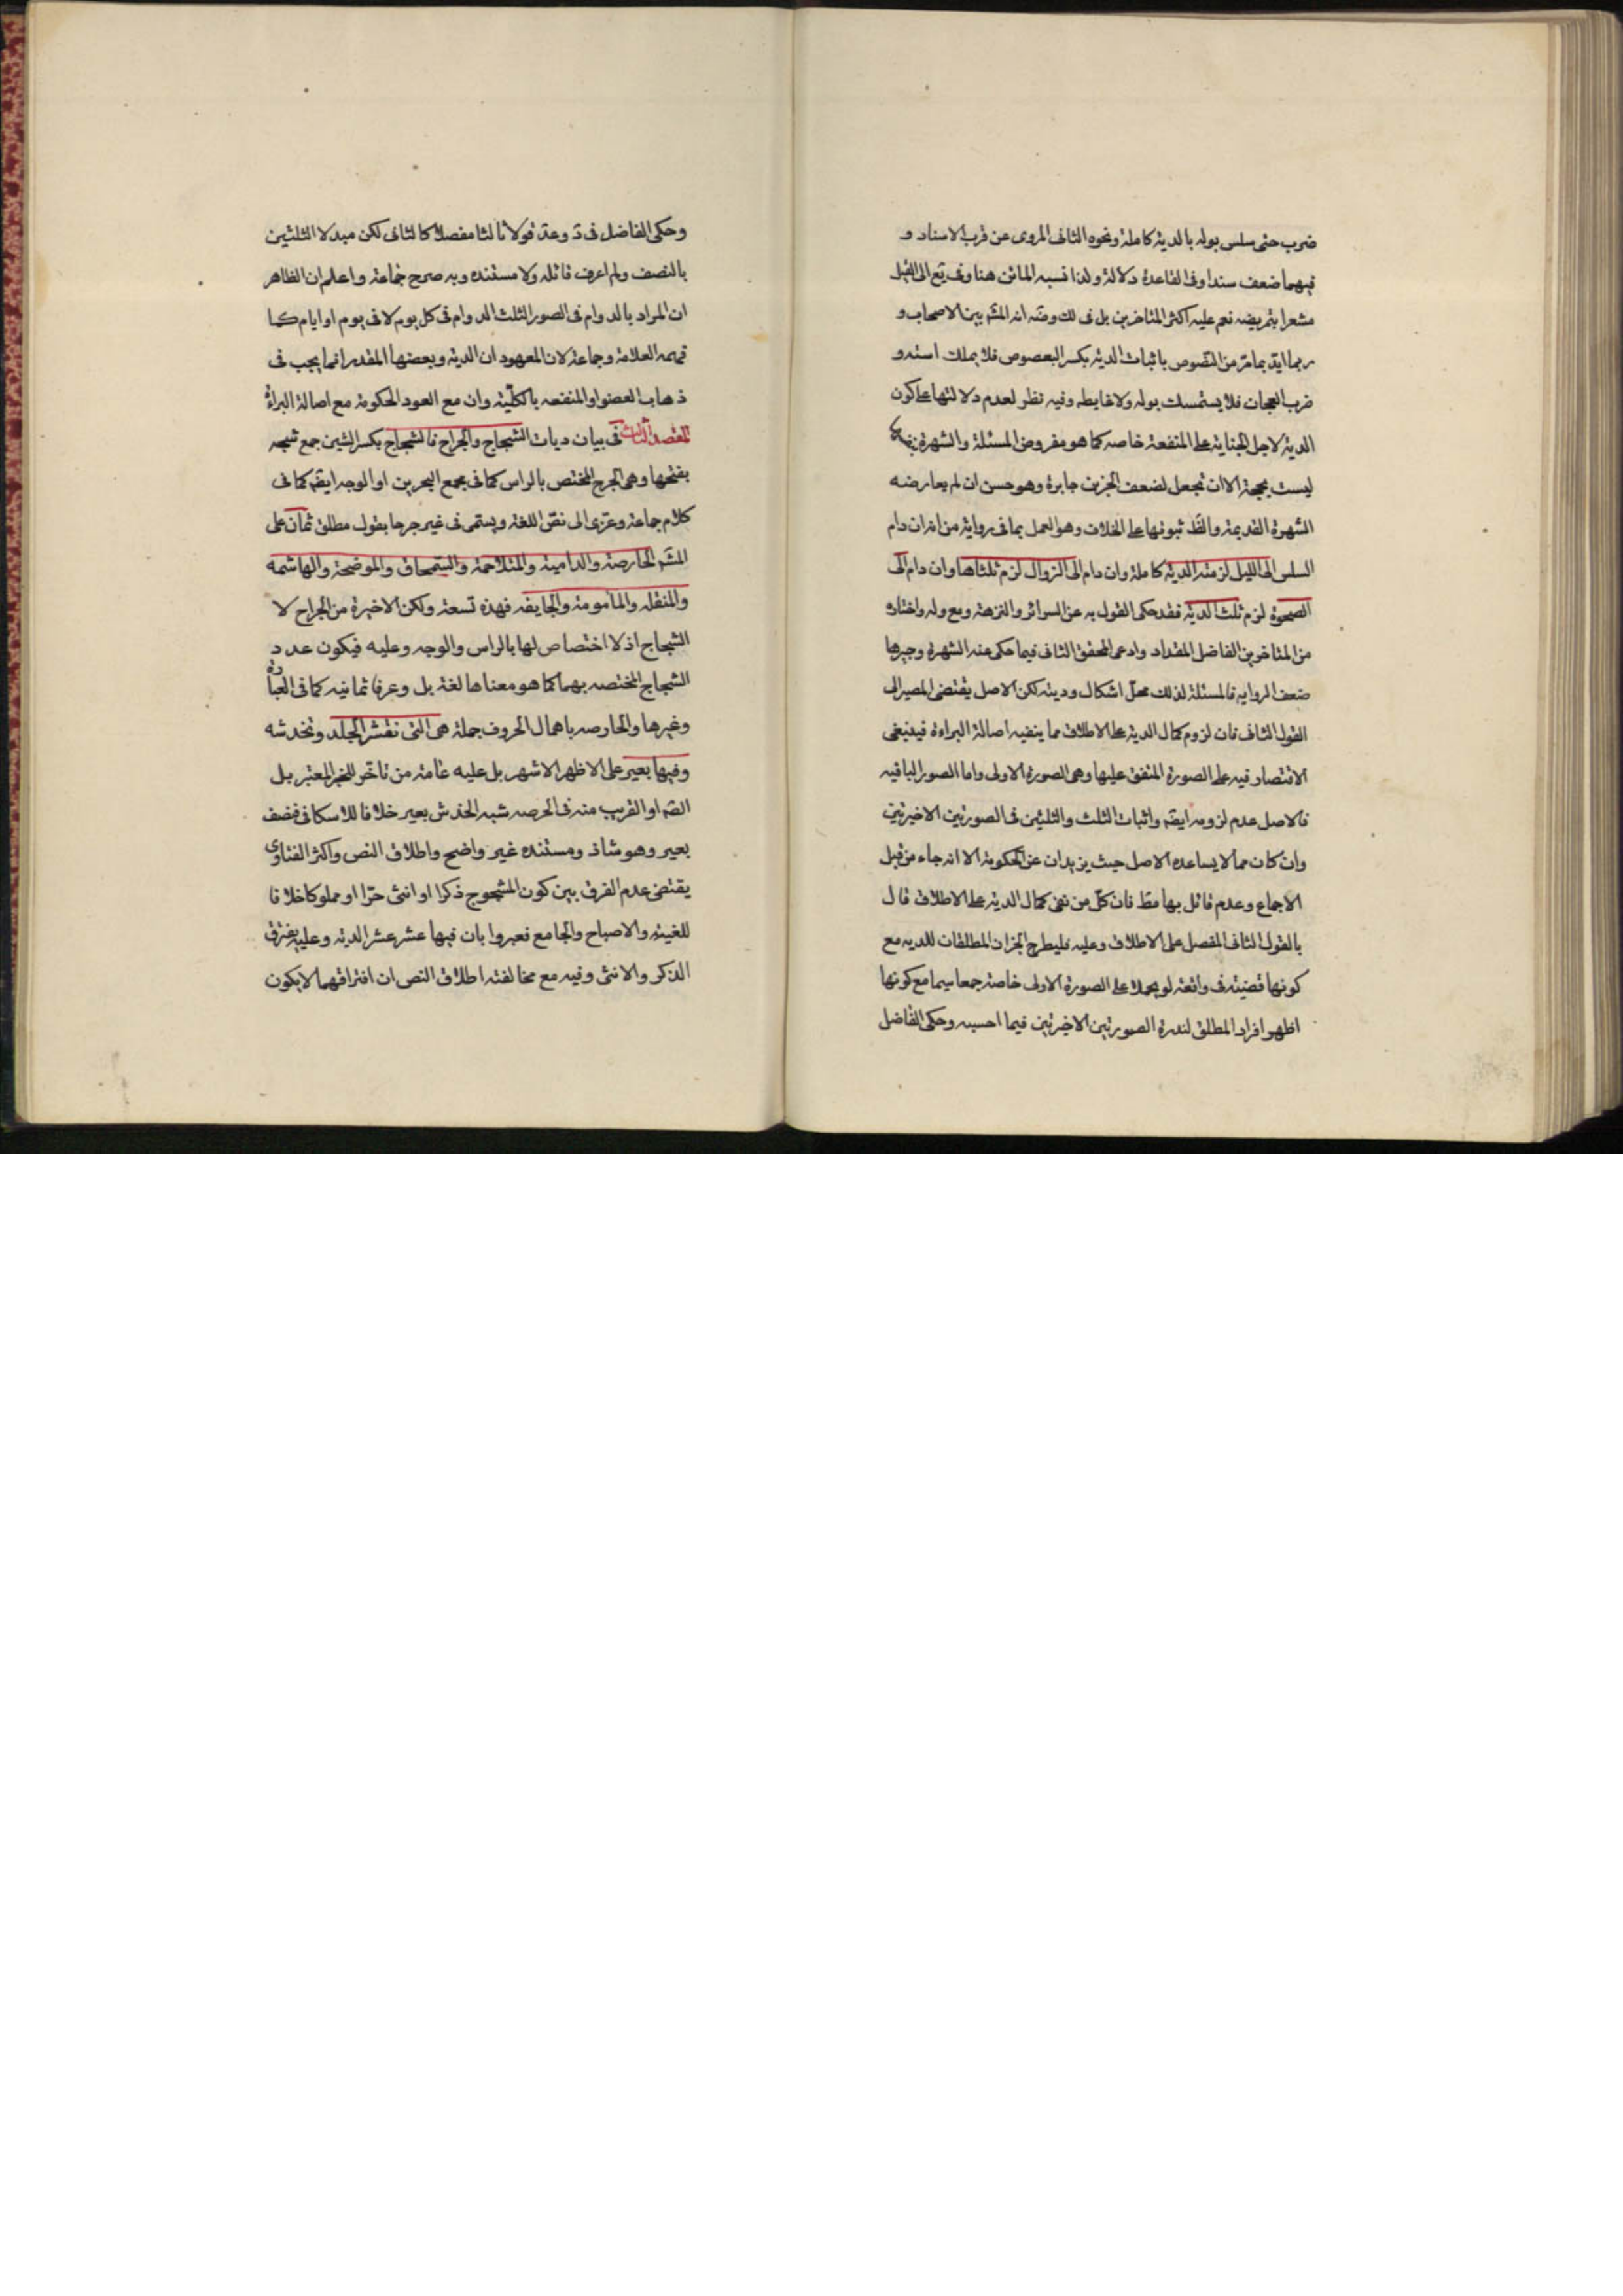 ضرب حتى سلس بوله بالدية كاملة ونحوه الثاني المروي عن قرب الاسناد و
فيهما ضعف سندا وفي القاعدة دلالة ولذا نسبه الماتن هنا وفي يع الى القيل
مشعرا بتمريضه نعم عليه اكثر المتاخرين بل في لك وضه انه المشه بين الاصحاب و
ربما ايد بما مر من النصوص باثبات الدية بكسر البعصوص فلا يملك استه و
ضرب العجان فلا يستمسك بوله ولا غايطه وفيه نظر لعدم دلالتها على كون
الدية لاجل الجناية على المنفعة خاصه كما هو مفروض المسئلة والشهرة
ليست بحجة الا ان تجعل لضعف الخبرين جابرة وهو حسن ان لم يعارضه
الشهرة القديمة والظ ثبوتها على الخلاف وهو العمل بما في رواية من انه ان دام
السلس الى الليل لزمته الدية كاملة وان دام الى الزوال لزم ثلثاها وان دام الى
الضحوة لزم ثلث الدية فقد حكى القول به عن السرائر والنزهة ويع وله واختاره
من المتاخرين الفاضل المقداد وادعى المحقق الثاني فيما حكى عنه الشهرة وجبرها
ضعف الروايه فالمسئلة لذلك محل اشكال وديته لكن الاصل يقتضي المصير الى
القول الثاني فان لزوم كمال الدية على الاطلاق مما ينفيه اصالة البراءة فينبغي
الاقتصار فيه على الصورة المتفق عليها وهي الصورة الاولى واما الصور الباقيه
فالاصل عدم لزومه ايضه واثبات الثلث والثلثين في الصورتين الاخيرتين
وان كان مما لا يساعده الاصل حيث يزيدان عن الحكومة الا انه جاء من قبل
الاجماع وعدم قائل بها مط فان كل من نفى كمال الدية على الاطلاق قال
بالقول الثاني المفصل على الاطلاق وعليه فليطرح الخبران المطلقان للديه مع
كونها قضية في واقعة لو يحملا على الصورة الاولى خاصة جمعا سيما مع كونها
اظهر افراد المطلق لندرة الصورتين الاخيرتين فيما احسبه وحكى الفاضل
وحكى الفاضل في د وعد قولا ثالثا مفصلا كالثاني لكن مبدلا الثلثين
بالنصف ولم اعرف قائله ولا مستنده وبه صرح جماعة واعلم ان الظاهر
ان المراد بالدوام في الصور الثلث الدوام في كل يوم لا في يوم او ايام كما
فهمه العلامة وجماعة لان المعهود ان الدية وبعضها المقدر انما يجب في
ذهاب العضو او المنفعه بالكلية وان مع العود الحكومة مع اصالة البراءة
المقصد الثالث في بيان ديات الشجاج والجراح فالشجاج بكسر الشين جمع شجه
بفتحها وهي الجرح المختص بالراس كما في مجمع البحرين او الوجه ايضه كما في
كلام جماعة وعزى الى نص اللغة ويسمى في غير جرحا بقول مطلق ثمان على
المشه الحارصة والدامية والمتلاحمة والسمحاق والموضحة والهاشمه
والمنقله والمامومة والجايفه فهذه تسعة ولكن الاخيرة من الجراح لا
الشجاج اذ لا اختصاص لها بالراس والوجه وعليه فيكون عدد
الشجاج المختصه بهما كما هو معناها لغة بل وعرفا ثمانيه كما في العبارة
وغيرها والحارصه باهمال الحروف جملة هي التي تقشر الجلد وتخدشه
وفيها بعير على الاظهر الاشهر بل عليه عامة من تاخر للخبر المعتبر بل
الصه او القريب منه في الحرصه شبه الخدش بعير خلافا للاسكافي فنصف
بعير وهو شاذ ومستنده غير واضح واطلاق النص واكثر الفتاوى
يقتضي عدم الفرق بين كون المشجوج ذكرا او انثى حرا او مملوكا خلافا
للغنية والاصباح والجامع فعبروا بان فيها عشر عشر الدية وعليه يفترق
الذكر والانثى وفيه مع مخالفته اطلاق النص ان افتراقهما لا يكون